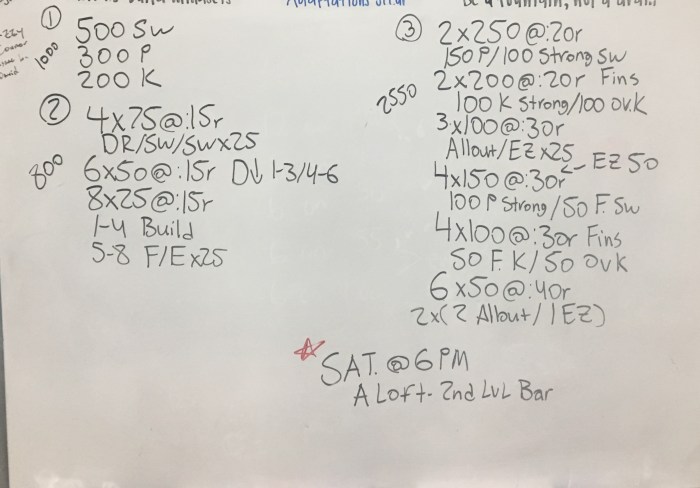 ① 500 SW
1000 300 P
200 K
② 4x75@:15r
DR/SW/SWx25
800 6x50@:15r D↓ 1-3/4-6
8x25@:15r
1-4 Build
5-8 F/E x25
③ 2x250@:20r
150P/100 Strong SW
2x200@:20r Fins
2550 100 K Strong/100 OV.K
3x100@:30r
Allout/EZ x25
4x150@:30r ← EZ 50
100 P Strong/50 F. SW
4x100@:30r Fins
50 F. K/50 OVK
6x50@:40r
2x(2 Allout/1EZ)
☆ SAT. @ 6 PM
A Loft - 2nd LVL Bar